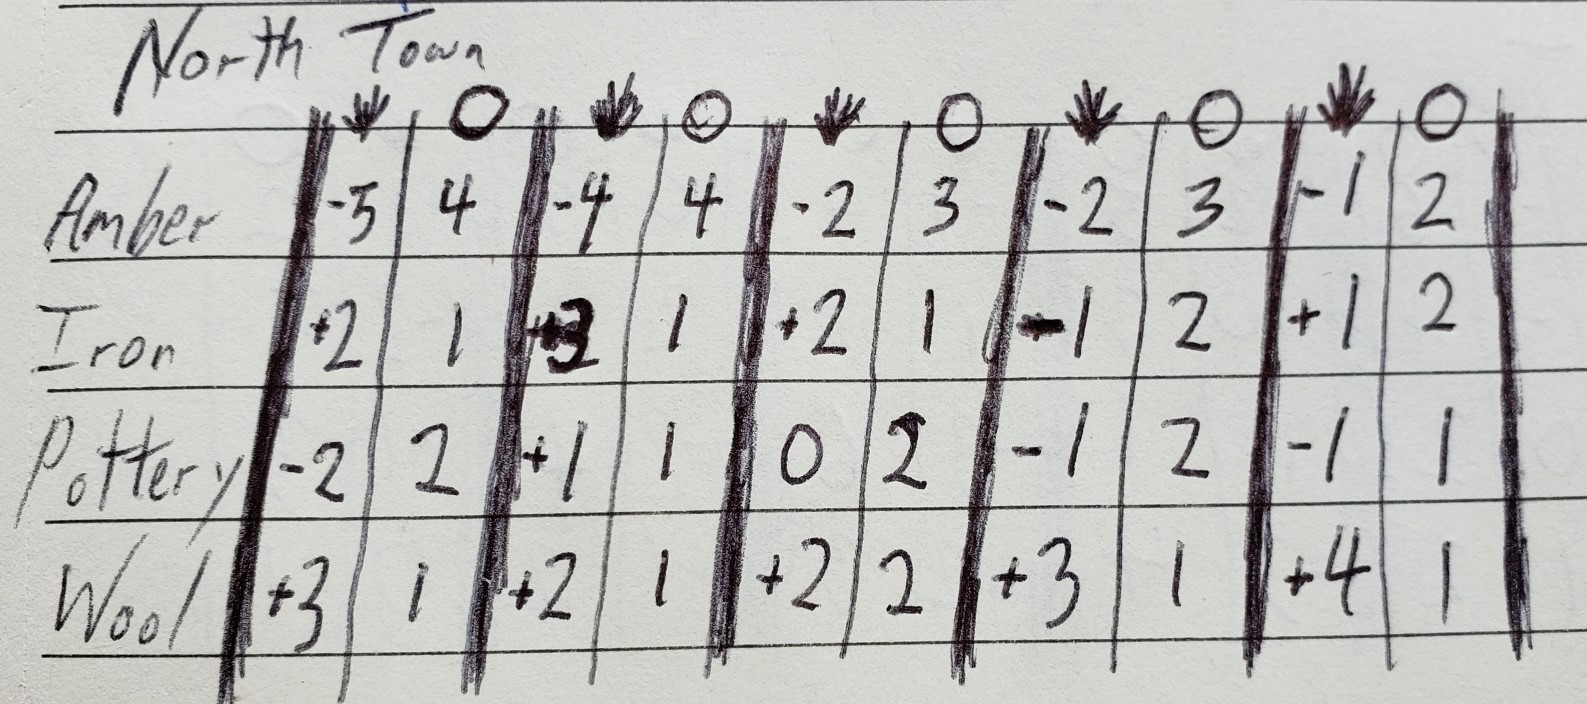 North Town
Amber -5 4 -4 4 -2 3 -2 3 -1 2
Iron +2 1 1 +2 1 -1 2 +1 2
Pottery -2 2 +1 1 0 2 -1 2 -1 1
Wool +3 1 +2 1 +2 2 +3 1 +4 1